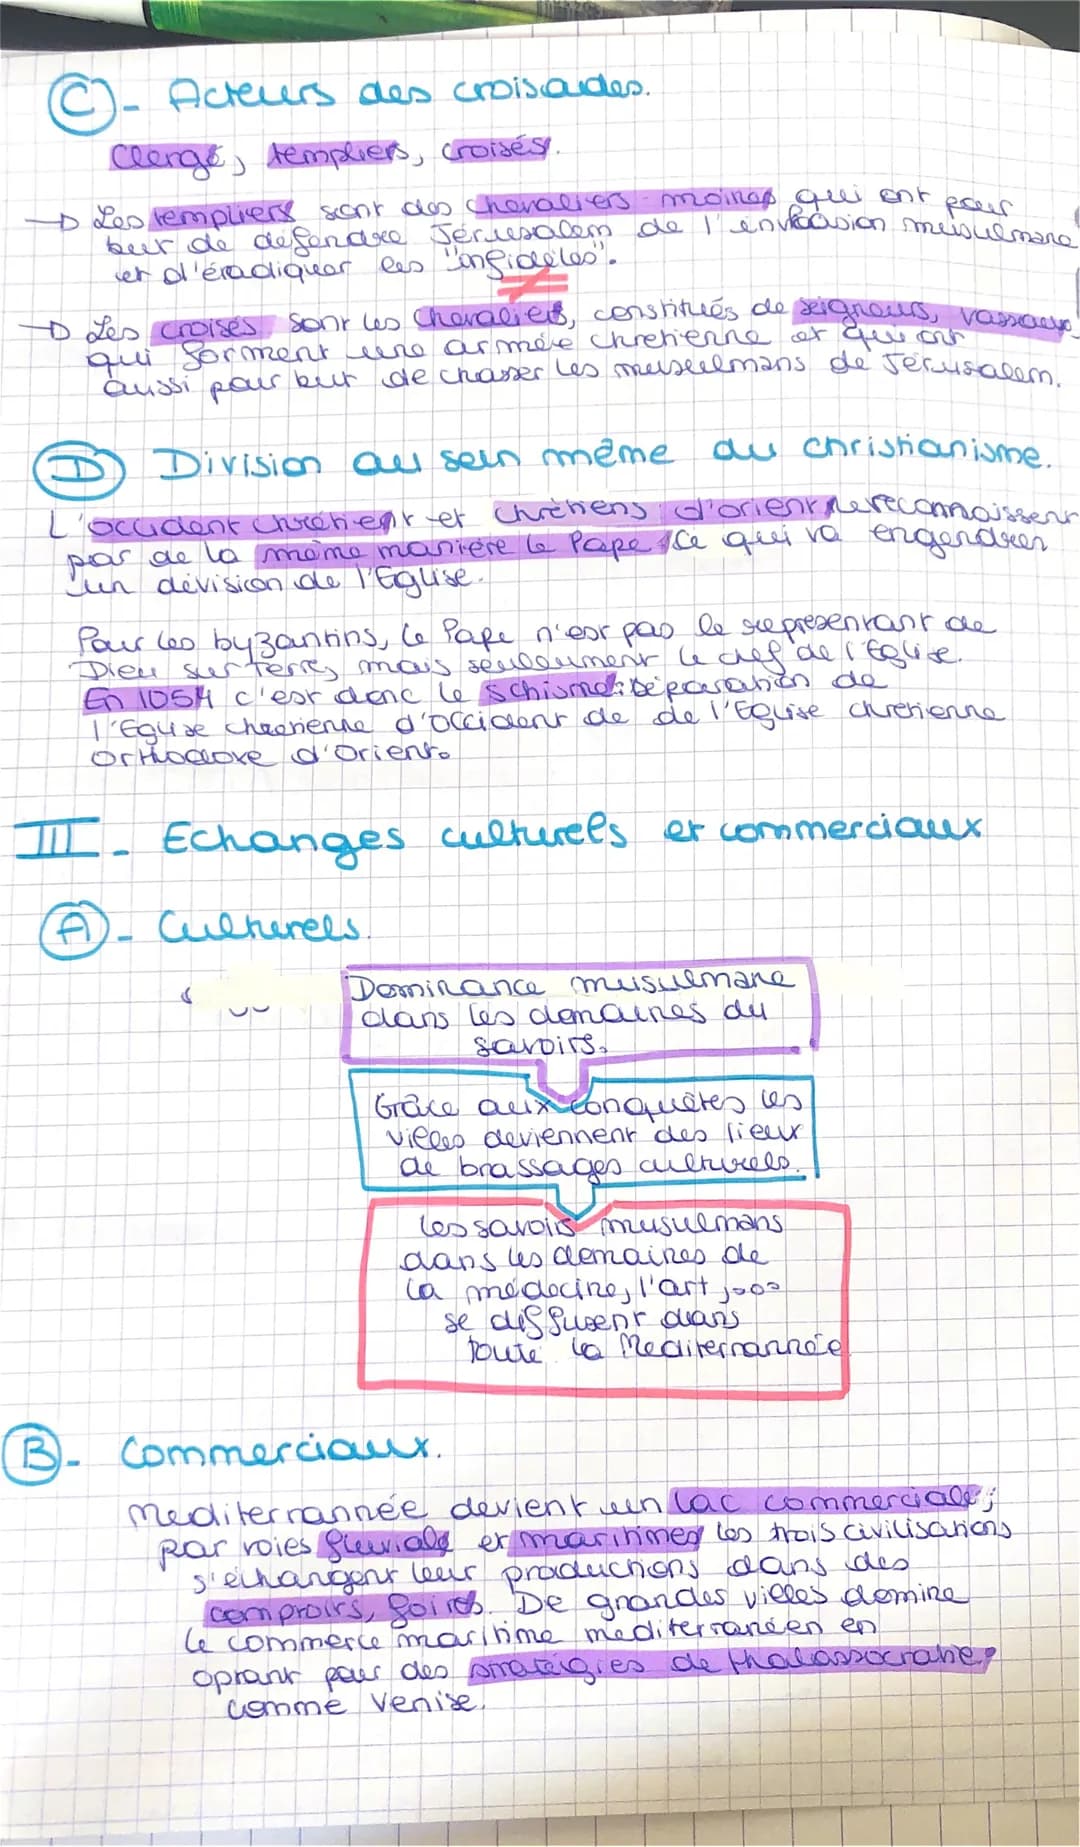 C - Acteurs des croisades.
Clergé, templiers, croisés.
→ Les templiers sont des chevaliers-moines qui ont pour
but de défendre Jérusalem de l'invasion musulmane
et d'éradiquer les "infidèles".
≠
→ Les croisés sont les chevaliers, constitués de seigneurs, vassaux,
qui forment une armée chretienne et qui ont
aussi pour but de chasser les musulmans de Jérusalem.
D Division au sein même du christianisme.
L'occident chrétient et chrétiens d'orient ne reconnaissent
pas de la même manière le Pape, ce qui va engendrer
un dévision de l'Eglise.
Pour les byzantins, le Pape n'est pas le représentant de
Dieu sur Terre, mais seuleument le chef de l'Eglise.
En 1054 c'est donc le schisme : séparation de
l'Eglise chretienne d'occident de de l'Eglise chretienne
orthodoxe d'Orient.
III - Echanges culturels et commerciaux
A - Culturels.
Dominance musulmane
dans les domaines du
savoirs.
Grâce aux conquêtes les
villes deviennent des lieux
de brassages culturels.
Les savoirs musulmans
dans les domaines de
la médecine, l'art,...
se diffusent dans
toute la Mediterrannée
B - Commerciaux.
Mediterrannée devient un lac commerciale ;
par voies fluviale et maritimes les trois civilisations
s'échangent leur productions dans des
comptoirs, foires. De grandes villes domine
le commerce maritime mediterranéen en
optant pour des stratégies de thalassocratie,
comme Venise.